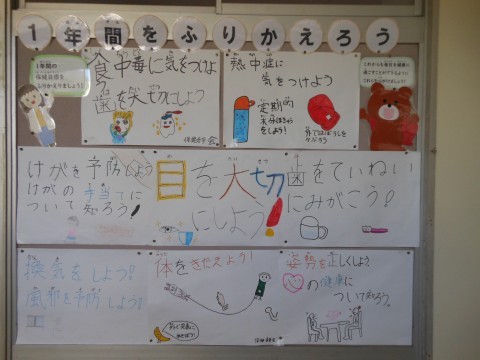 1年間をふりかえろう
1年間の
保健目標を
ふりかえりましょう！
食中毒に気をつけよ
歯を大切にしよう
熱中症に
気をつけよう
定期的
水分ほきゅう
をしよう！
外ではぼうしを
かぶろう
けがを予防しよう
けがの手当てに
ついて知ろう！
目を大切
にしよう！
歯をていねい
にみがこう！
換気をしよう！
風邪を予防しよう！
体をきたえよう！
姿勢を正しくしよう
心の健康に
ついて知ろう。